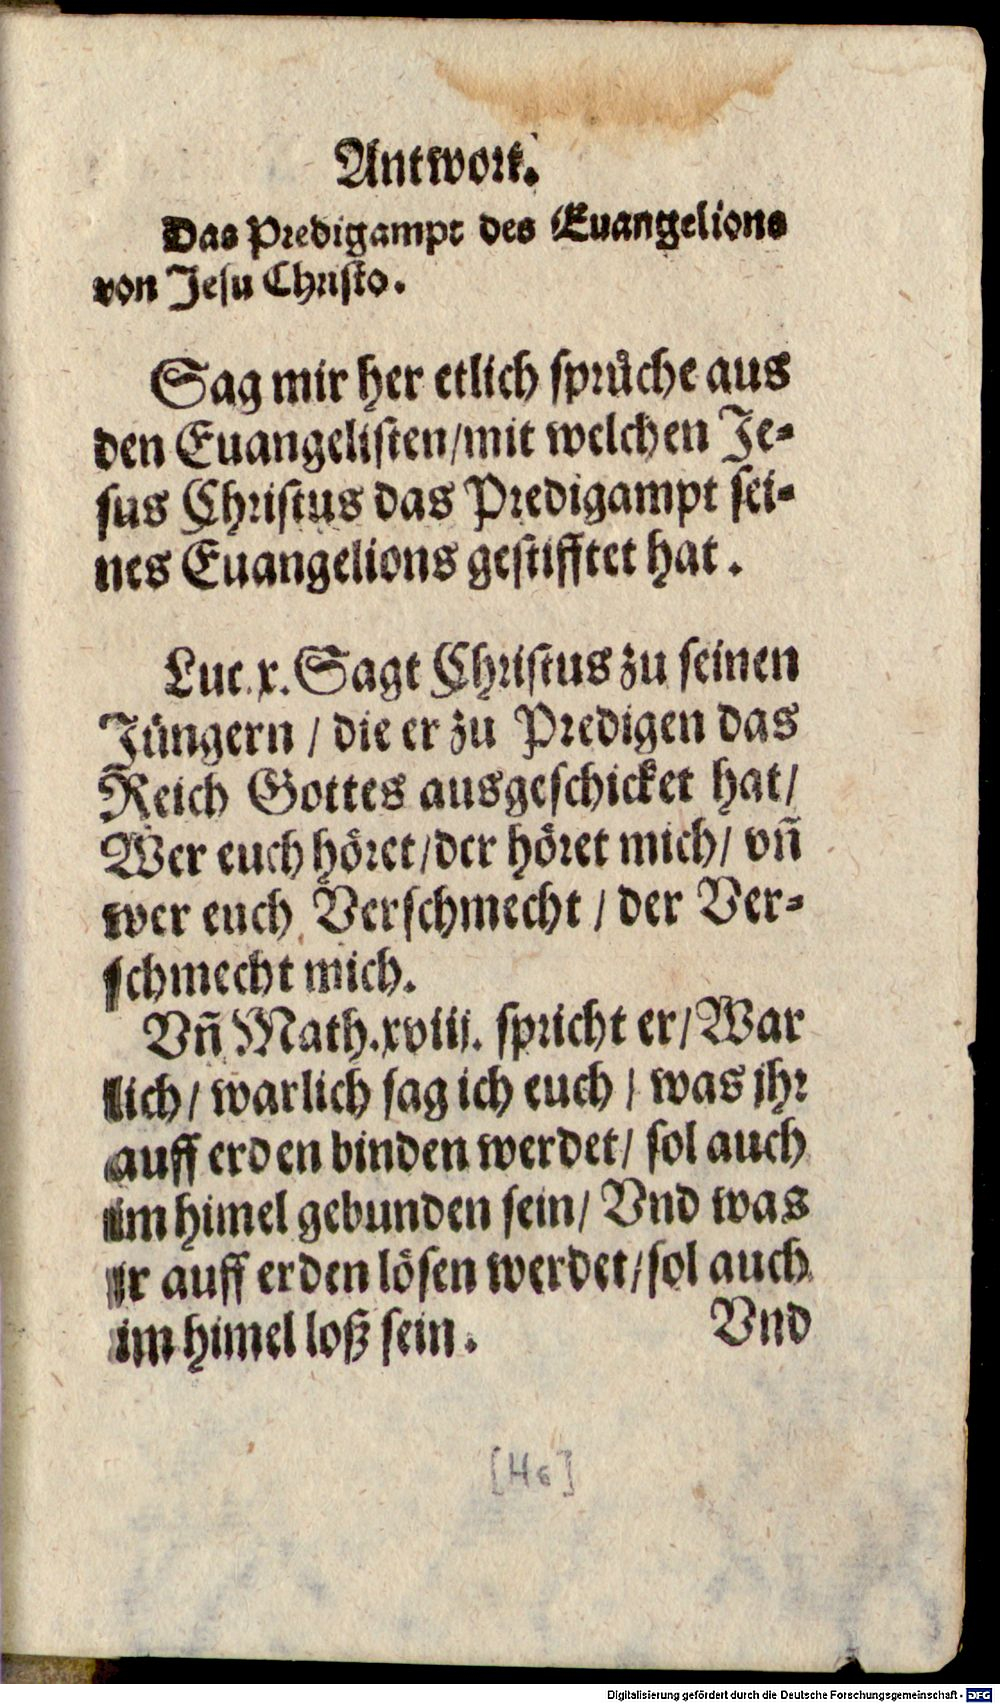 Antwort.
Das Predigampt des Euangelions
von Jesu Christo.
Sag mir her etlich sprůche aus
den Euangelisten/mit welchen Je-
sus Christus das Predigampt sei-
nes Euangelions gestifftet hat.
Luc.x. Sagt Christus zu seinen
Jüngern / die er zu Predigen das
Reich Gottes ausgeschicket hat/
Wer euch höret/der höret mich/ vñ
wer euch Verschmecht / der Ver-
schmecht mich.
Vñ Math.xviij. spricht er/War
lich/ warlich sag ich euch / was jhr
auff erden binden werdet/ sol auch
im himel gebunden sein/ Vnd was
ir auff erden lösen werdet/sol auch
im himel loß sein.
Vnd
[H6]
Digitalisierung gefördert durch die Deutsche Forschungsgemeinschaft - DFG